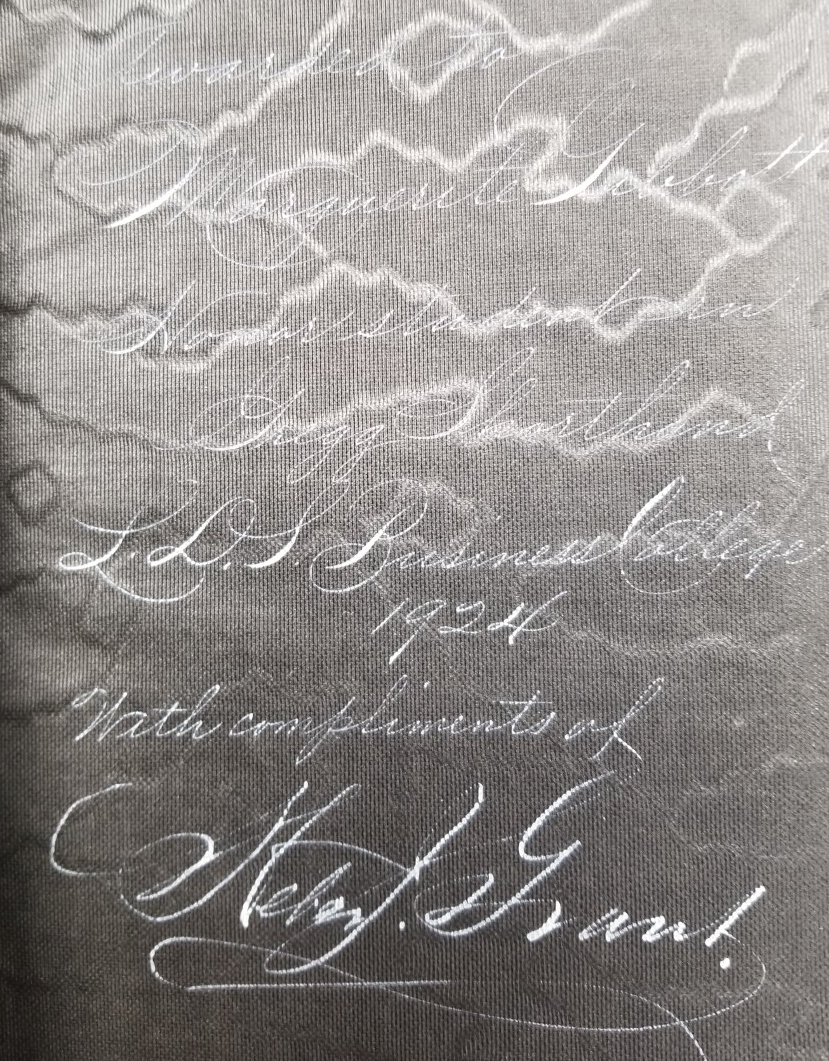 Awarded to
Marguerite
Honor student in
Gregg Shorthand
L.D.S. Business College
1924
With compliments of
Heber J. Grant.